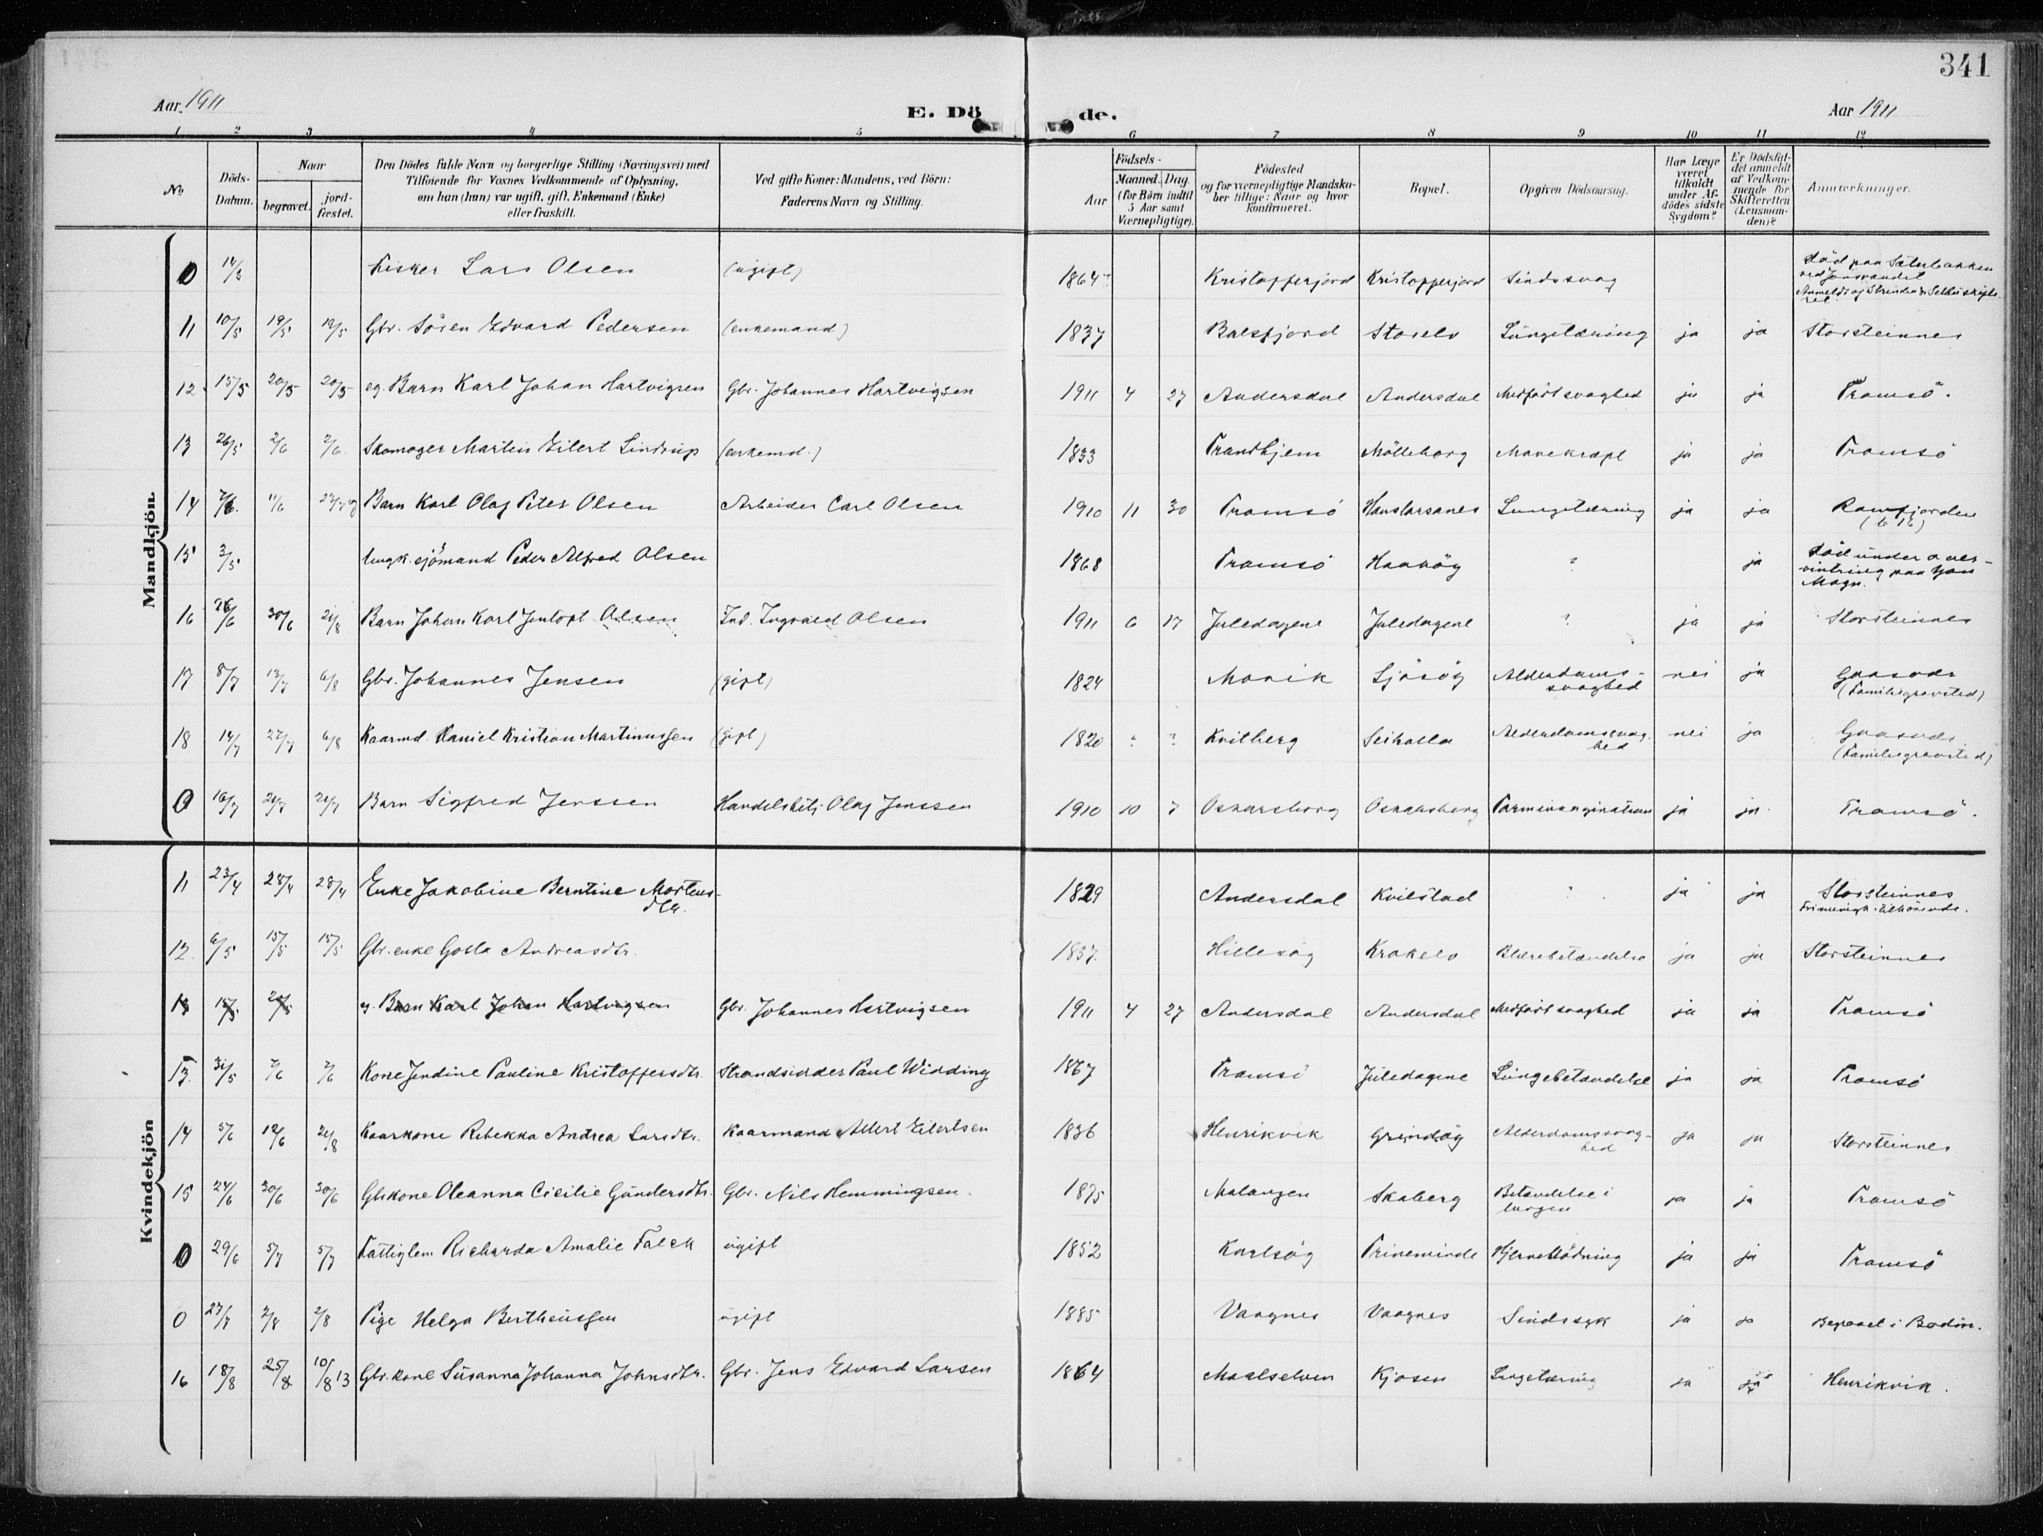 341
Aar 1911
E. Dö de.
Aar 1911
1 2 3 4 5 6 7 8 9 10 11 12
No
Döds-Datum.
Naar
begravet.
jord-fæstet.
Den Dödes fulde Navn og borgerlige Stilling (Næringsvei) med
Tilföiende for Voxnes Vedkommende af Oplysning,
om han (hun) var ugift, gift, Enkemand (Enke)
eller fraskilt.
Ved gifte Koner: Mandens, ved Börn:
Faderens Navn og Stilling.
Födsels-
Aar
Maaned. Dag
(for Börn indtil
5 Aar samt
Værnepligtige).
Födested
og for værnepligtige Mandska-
ber tillige: Naar og hvor
konfirmeret.
Bopæl.
Opgiven Dödsaarsag.
Har Læge
været
tilkaldt
under Af-
dödes sidste
Sygdom?
Er Dödsfal-
det anmeldt
af Vedkom-
mende for
Skifteretten
(Lensman-
den)?
Anmærkninger.
Mandkjön.
0 14/5 Fisker Lars Olsen (ugift) 1864 Kristofferjord Kristofferjord Sindssvag
11 10/5 19/5 19/5 Gbr. Sören Edvard Pedersen (enkemand) 1837 Balsfjord Storelv Lungetæring ja ja Storsteinnes
12 15/5 20/5 20/5 eg. Barn Karl Johan Hartvigsen Gbr. Johannes Hartvigsen 1911 4 27 Andersdal Andersdal Medfödt svaghed ja ja Tromsö.
13 26/5 2/6 2/6 Skomager Martin Eilert Lindrup (enkemd.) 1833 Trondhjem Mölleborg Mavekræft ja ja Tromsö
14 7/6 11/6 Barn Karl Olaf Peter Olsen Arbeider Carl Olsen 1910 11 30 Tromsö Hanslarsanes Lungetæring ja ja Ramfjorden
15 3/5 Ungk. sjömand Peder Alfred Olsen 1868 Tromsö Haaköy ? ja Död under over-
vintring paa Jan
Mayn.
16 26/6 30/6 21/8 Barn Johan Karl Jentoft Olsen Ind. Ingvald Olsen 1911 6 17 Juledagene Juledagene ? ja ja Storsteinnes
17 8/7 13/7 6/8 Gbr. Johannes Jensen (gift) 1824 Movik Sjösög Alderdoms-
svaghed nei ja
(Familiegravsted)
18 14/7 27/7 6/8 Kaarmd. Daniel Kristian Martinussen (gift) 1820 ? ? Kvitberg Seihalla Alderdomssvag-
hed nei ja
(Familiegravsted)
0 16/7 21/7 21/7 Barn Sigfred Jenssen Handelsbetj. Olaf Jenssen 1910 10 7 Oskarsborg Oskarsborg Tarminvagination ja ja Tromsö.
Kvindekjön
11 23/4 28/4 28/4 Enke Jakobine Berntine Mortens-
dtr. 1829 Andersdal Kvilstad ? ja ja Storsteinnes
12 6/5 15/5 15/5 Gbr. enke Golla Andreasdtr. 1837 Hillesög Krokelv Blærebetændelse ja ja Storsteinnes
13 15/5 20/5 eg. Barn Karl Johan Hartvigsen Gbr. Johannes Hartvigsen 1911 4 27 Andersdal Andersdal Medfödt svaghed ja ja Tromsö
13. 31/5 7/6 7/6 Kone Jendine Pauline Kristoffersdtr. Strandsidder Paul Widding 1867 Tromsö Juledagene Lungebetændelse ja ja Tromsö
14 5/6 12/6 21/8 Kaarkone Rebekka Andrea Larsdtr. Kaarmand Albert Eilertsen 1836 Henrikvik Grindög Alderdomssvag-
hed ja ja Storsteinnes
15 24/6 30/6 30/6 Gbrkone Oleanna Cicilie Gundersdtr. Gbr. Nils Hemmingsen. 1875 Malangen Skaberg Betændelse i
ja ja Tromsö
0 29/6 5/7 5/7 Fattiglem Richarda Amalie Falck ugift 1852 Karlsög Trineminde Hjerneblödning ja ja Tromsö
0 27/7 2/8 2/8 Pige Helga Bertheussen ugift 1885 Vaagnes Vaagnes Sindssyk ja ja Begravet i Bodin.
16 18/8 25/8 10/8 13 Gbr. kone Susanna Johanna Johnsdtr. Gbr. Jens Edvard Larsen 1864 Maalselven Kjosen Lungetæring ja ja Henrikvik.